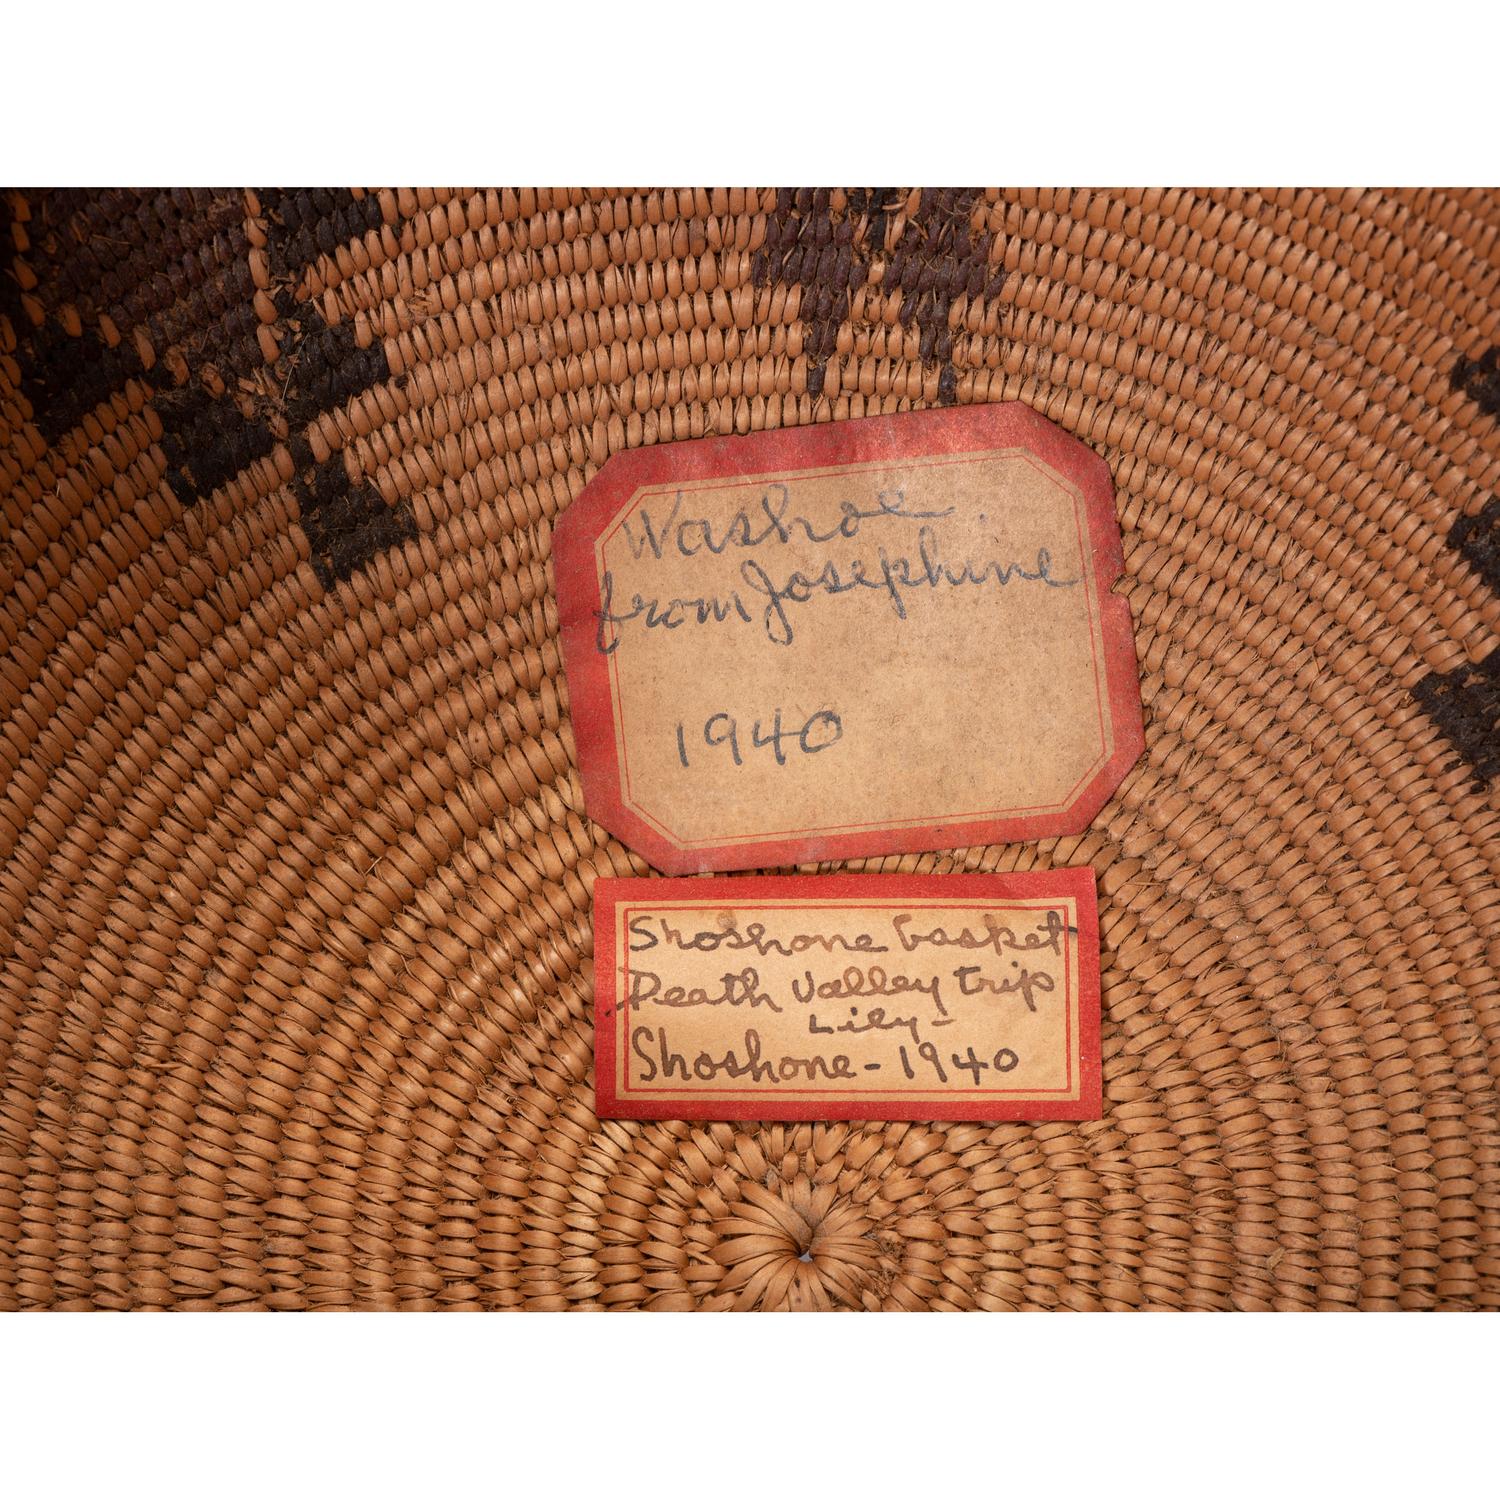 Washoe
from Josephine
1940
Shoshone basket
Death Valley trip
Lily-
Shoshone - 1940